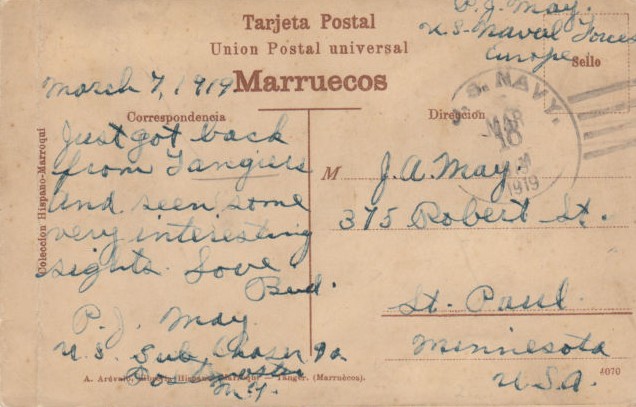 Tarjeta Postal
Union Postal universal
Marruecos
P. J. May.
U.S. Naval Forces
Europe
Sello
March 7, 1919
Correspondencia
Dirección
U.S. NAVY.
MAR
10
M
1919
Just got back
from Tangiers
and seen some
very interesting
sights. Love
Bud.
P. J. May
U.S. Sub Chaser
Postmaster
N.Y.
M
J. A. May.
375 Robert St.
St. Paul
Minnesota
U.S.A.
Coleccion Hispano-Marroqui
A. Arévalo, (Hispano - Tanger. (Marruécos).
4070